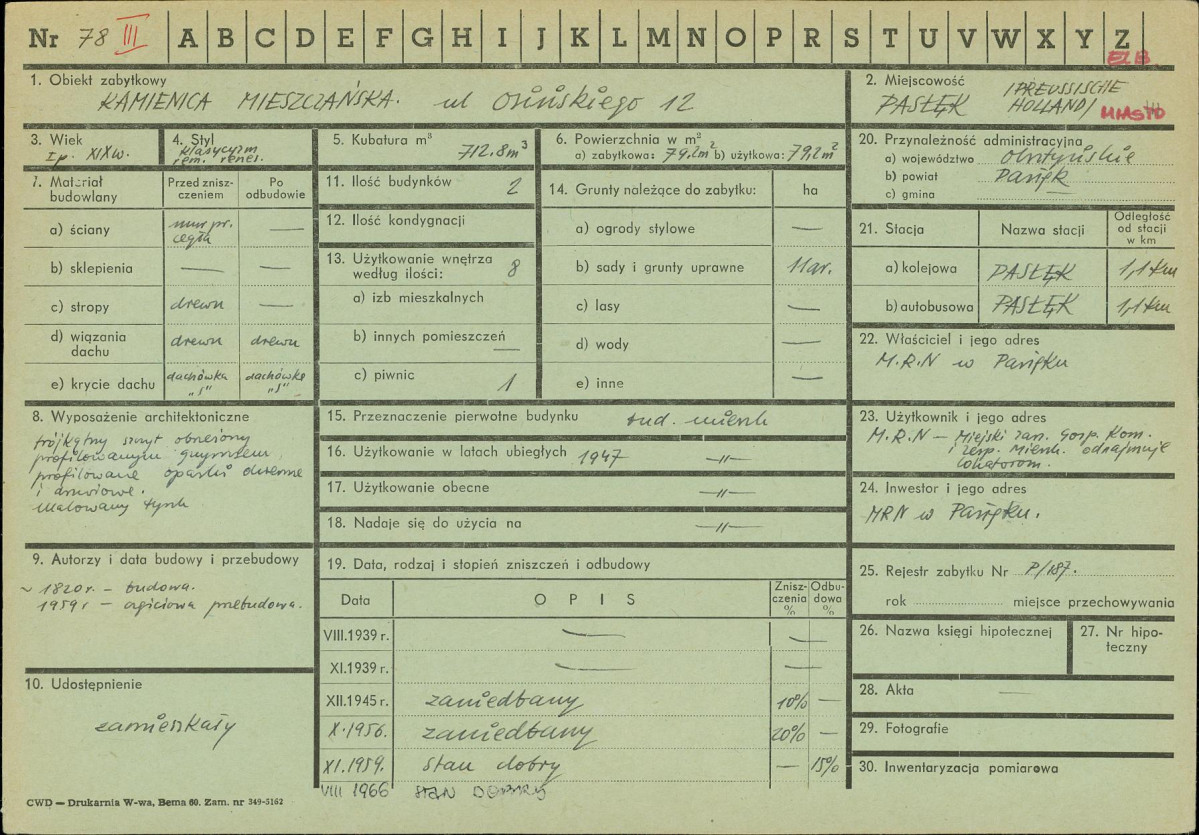 Nr 78 III A B C D E F G H I J K L M N O P R S T U V W X Y Z
ELB
1. Obiekt zabytkowy
KAMIENICA MIESZCZAŃSKA. ul Osińskiego 12
2. Miejscowość /PREUSSISCHE
PASŁĘK HOLLAND/ MIASTO
3. Wiek
I p. XIX w.
4. Styl
klasycyzm
rem. renes.
5. Kubatura m³
712.8 m³
6. Powierzchnia w m²
a) zabytkowa: 79,2 m² b) użytkowa: 79,2 m²
7. Materiał budowlany
Przed zniszczeniem
Po odbudowie
a) ściany mur pr. cegła —
b) sklepienia — —
c) stropy drewn —
d) wiązania dachu drewn drewn
e) krycie dachu dachówka „S” dachówka „S”
8. Wyposażenie architektoniczne
trójkątny szczyt obwiedziony
profilowanym gzymsem
profilowane opaski okienne
i drzwiowe.
Malowany tynk
9. Autorzy i data budowy i przebudowy
~ 1820 r. – budowa.
1959 r – częściowa przebudowa.
10. Udostępnienie
zamieszkały
11. Ilość budynków 2
12. Ilość kondygnacji
13. Użytkowanie wnętrza
według ilości: 8
a) izb mieszkalnych
b) innych pomieszczeń —
c) piwnic 1
14. Grunty należące do zabytku: ha
a) ogrody stylowe —
b) sady i grunty uprawne 11 ar.
c) lasy —
d) wody —
e) inne —
15. Przeznaczenie pierwotne budynku bud. mieszk
16. Użytkowanie w latach ubiegłych 1947 —„—
17. Użytkowanie obecne —„—
18. Nadaje się do użycia na —„—
19. Data, rodzaj i stopień zniszczeń i odbudowy
Data OPIS Zniszczenia % Odbudowa %
VIII.1939 r. — —
XI.1939 r. — —
XII.1945 r. zaniedbany 10% —
X.1956. zaniedbany 20% —
XI.1959. stan dobry — 15%
VIII 1966 STAN DOBRY
20. Przynależność administracyjna
a) województwo Olsztyńskie
b) powiat Pasłęk
c) gmina
21. Stacja Nazwa stacji Odległość od stacji w km
a) kolejowa PASŁĘK 1,1 km
b) autobusowa PASŁĘK 1,1 km
22. Właściciel i jego adres
M.R.N w Pasłęku
23. Użytkownik i jego adres
M.R.N – Miejski zarz. Gosp. Kom.
i zesp. Mieszk. odnajmuje
lokatorom.
24. Inwestor i jego adres
MRN w Pasłęku.
25. Rejestr zabytku Nr P/187.
rok miejsce przechowywania
26. Nazwa księgi hipotecznej
27. Nr hipoteczny
28. Akta —
29. Fotografie
30. Inwentaryzacja pomiarowa
CWD — Drukarnia W-wa, Bema 60. Zam. nr 349-5162